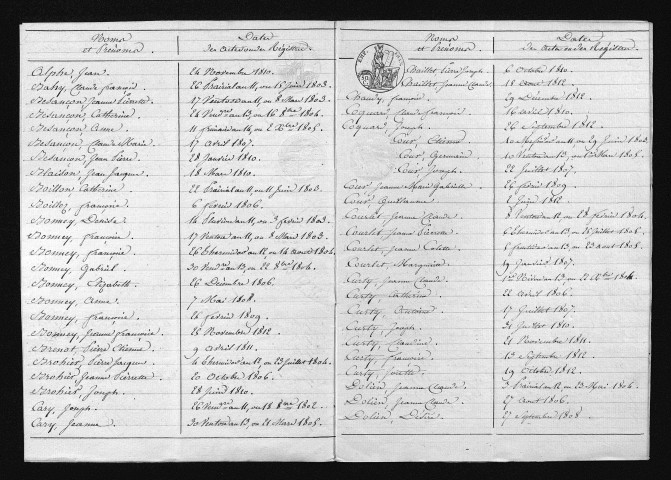 Noms et Prénoms.
Dates des actes ou des Registres.
Alphe, Jean.
24 Novembre 1810.
Bahy, Claude françois
26 Prairial an 11, ou 15 Juin 1803.
Besançon, Jeanne Pierrette
17 Ventose an 11, ou 8 Mars 1803.
Besançon, Catherine
Besançon, Anne
Besançon, Claude Marie
17 avril 1807.
Besançon, Jean Pierre
28 Janvier 1810.
Blaison, Jean Jacques
18 Mars 1810.
Boillon Catherine
22 Prairial an 11, ou 11 Juin 1803.
françoise
6 février 1806.
Bonney, Denise
14 Pluviose an 11, ou 3 février 1803.
Bonney, françoise
17 Ventose an 11, ou 8 Mars 1803.
Bonney, françoise
Bonney, Gabriel
30 Vend.re an 13, ou 22 8bre 1804.
Bonney, Elizabeth
26 Décembre 1806.
Bonney, Anne
7 Mai 1808.
Bonney, françoise
26 février 1809.
Bonney, Jeanne françoise
25 Novembre 1812.
Brenot Pierre Etienne
9 avril 1811.
Brohier, Pierre Jacques
4 thermidor an 12, ou 23 Juillet 1804.
Brohier, Jeanne Pierrette
20 Octobre 1806.
Brohier, Joseph
28 Juin 1810.
Cary, Joseph
26 Vend.re an 11, ou 18 8bre 1802.
Cary, Jeanne
30 Ventose an 13, ou 21 Mars 1805.
Noms et Prénoms.
Dates des actes ou des Registres.
Chaillet Pierre Joseph
6 Octobre 1810.
Chaillet Jeanne Claude
18 aout 1812.
Chauds, françois
29 Décembre 1812.
Coquard, Claude françois
16 avril 1810.
Coquard, Joseph
26 Septembre 1812.
Cour, Etienne
10 Messidor an 11, ou 29 Juin 1803.
Cour, Germain
Cour, Joseph
22 Juillet 1807.
Cour, Jeanne Marie Gabrielle
26 février 1809.
Cour, Guillaume
2 Juin 1812
Courlet Jeanne Claude
8 Ventose an 12, ou 28 février 1804.
Courlet Jeanne Pierrette
6 thermidor an 13, ou 25 Juillet 1805.
Courlet Jeanne Colette
5 fructidor an 13, ou 23 aout 1805.
Courlet, Marguerite
19 Janvier 1807.
Curty, Jeanne Claude
1er Nivose an 13, ou 22 Xbre 1804
Curty, Catherine
22 avril 1806.
Curty, Antoine
17 Juillet 1807.
Curty, Joseph
21 Juillet 1810.
Curty, Claudine
21 Novembre 1811.
Curty, françois
13 Septembre 1812.
Curty, Josette
19 Octobre 1812.
Dolien, Jeanne Claude
Dolien, Jeanne Claude
27 aout 1806.
Dolien, Désiré
27 Septembre 1808.